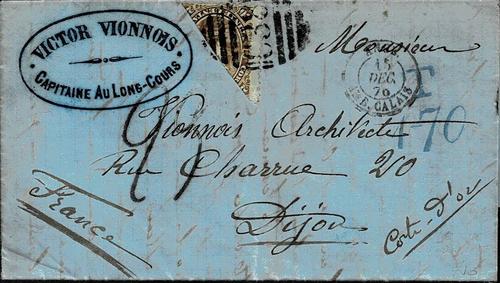 VICTOR VIONNOIS
CAPITAINE AU LONG-COURS
Monsieur
15
DEC.
76
CALAIS
T
1-70
Vionnois Architecte
Rue Charrue 20
Dijon
France
Cote-d'or